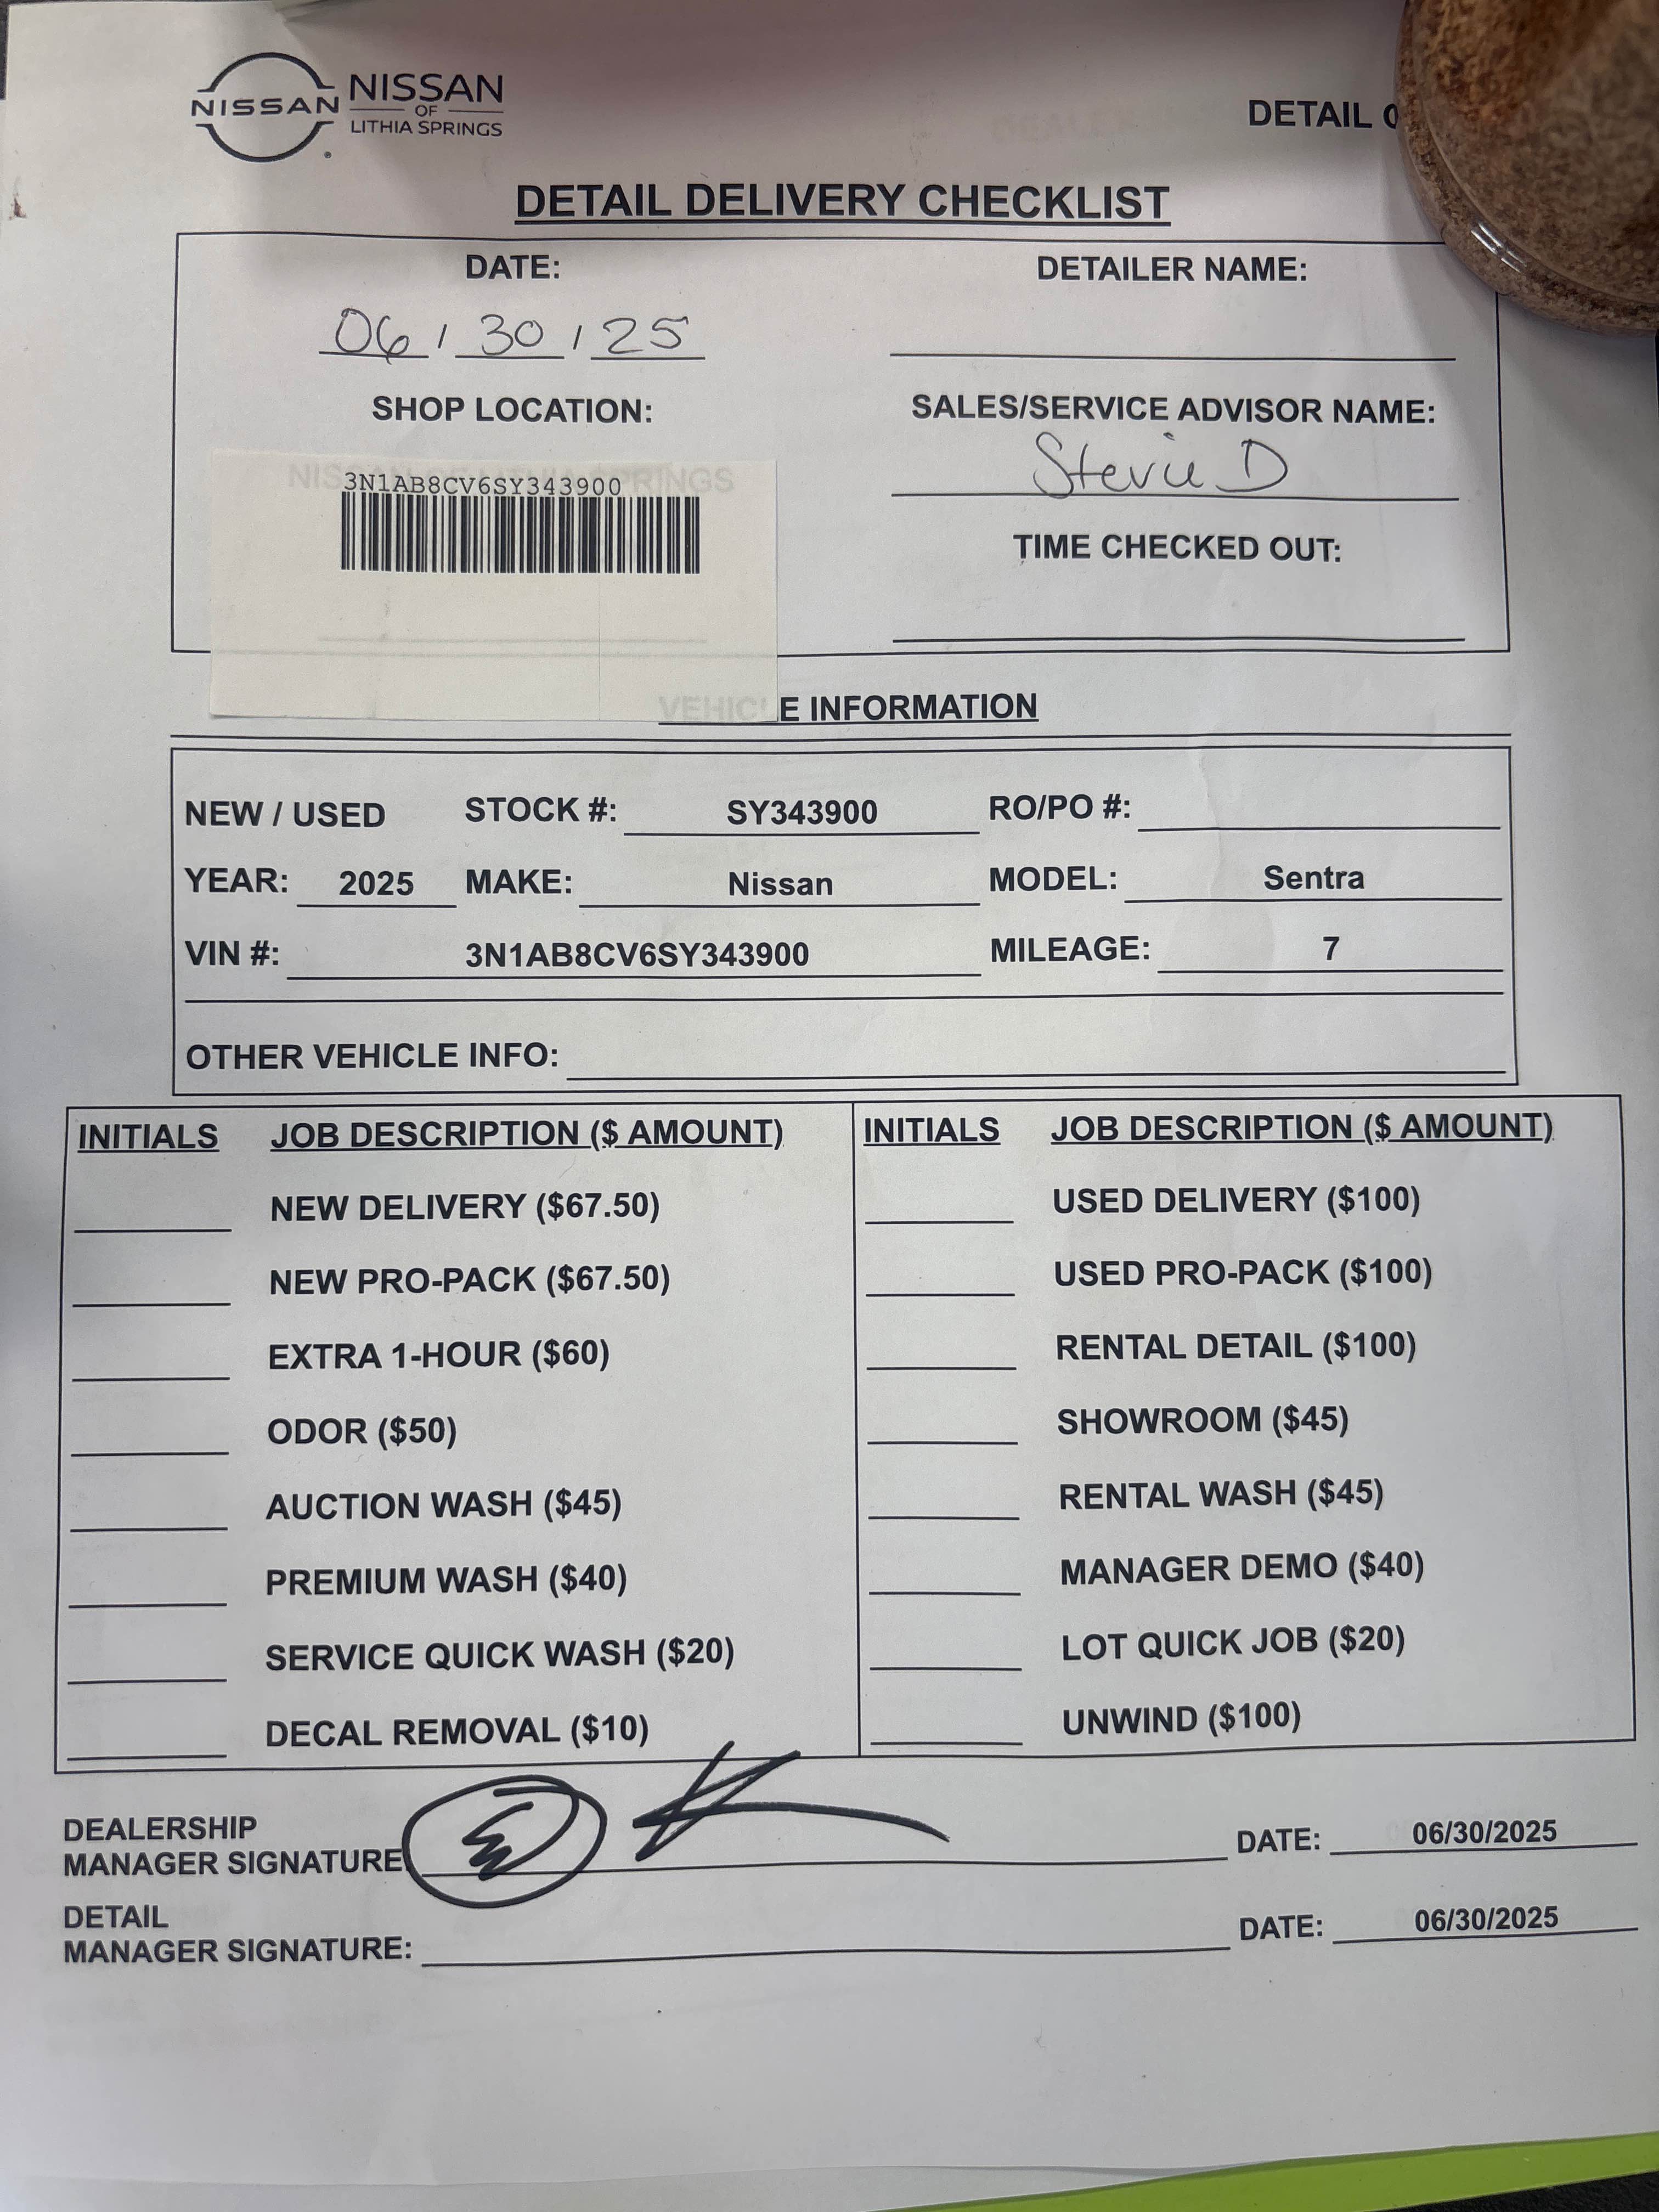 NISSAN
NISSAN
OF
LITHIA SPRINGS
DETAIL
DETAIL DELIVERY CHECKLIST
DATE:
06/30/25
DETAILER NAME:
SHOP LOCATION:
NISSAN OF LITHIA SPRINGS
3N1AB8CV6SY343900
SALES/SERVICE ADVISOR NAME:
Stevie D
TIME CHECKED OUT:
VEHICLE INFORMATION
NEW / USED STOCK #: SY343900 RO/PO #:
YEAR: 2025 MAKE: Nissan MODEL: Sentra
VIN #: 3N1AB8CV6SY343900 MILEAGE: 7
OTHER VEHICLE INFO:
INITIALS JOB DESCRIPTION ($ AMOUNT) INITIALS JOB DESCRIPTION ($ AMOUNT)
NEW DELIVERY ($67.50) USED DELIVERY ($100)
NEW PRO-PACK ($67.50) USED PRO-PACK ($100)
EXTRA 1-HOUR ($60) RENTAL DETAIL ($100)
ODOR ($50) SHOWROOM ($45)
AUCTION WASH ($45) RENTAL WASH ($45)
PREMIUM WASH ($40) MANAGER DEMO ($40)
SERVICE QUICK WASH ($20) LOT QUICK JOB ($20)
DECAL REMOVAL ($10) UNWIND ($100)
DEALERSHIP
MANAGER SIGNATURE DATE: 06/30/2025
DETAIL
MANAGER SIGNATURE: DATE: 06/30/2025